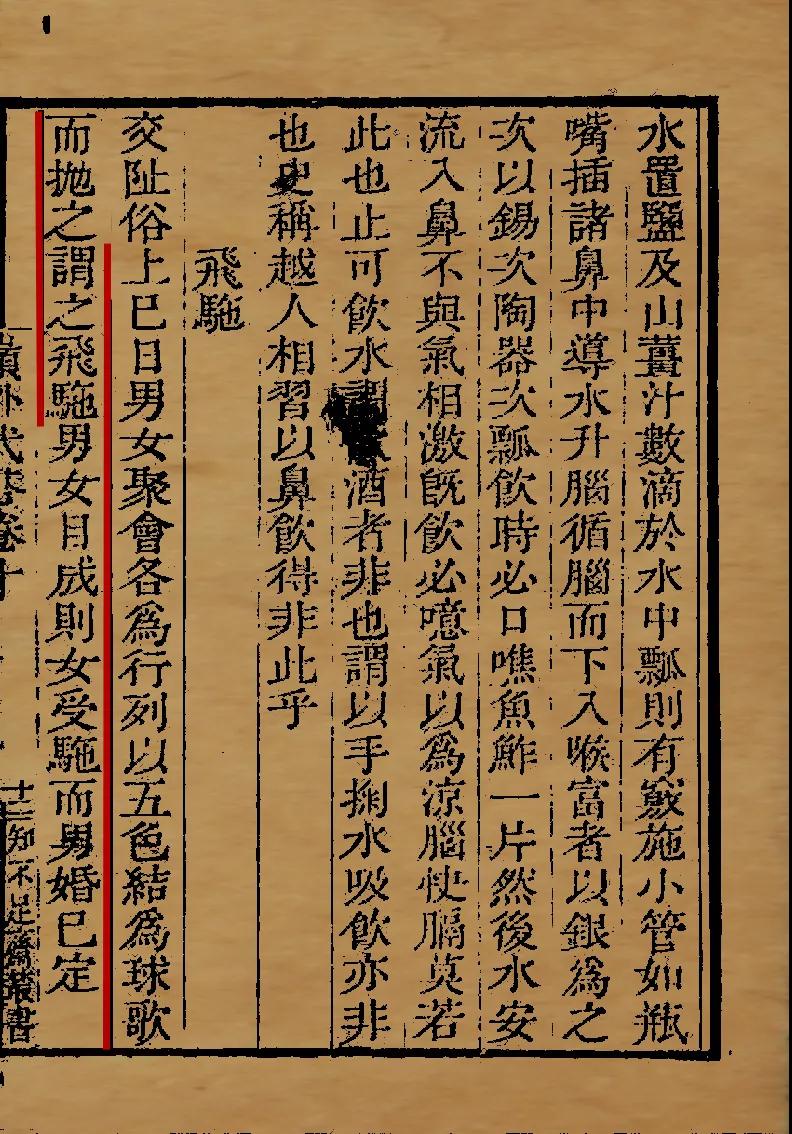 水置鹽及山薑汁數滴於水中瓢則有竅施小管如瓶
嘴插諸鼻中導水升腦循腦而下入喉富者以銀爲之
次以錫次陶器次瓢飲時必口噍魚鮓一片然後水安
流入鼻不與氣相激旣飲必噫氣以爲涼腦快膈莫若
此也止可飲水酒者非也謂以手掬水吸飲亦非
也史稱越人相習以鼻飲得非此乎
飛駞
交阯俗上巳日男女聚會各爲行列以五色結爲球歌
而抛之謂之飛駞男女目成則女受駞而男婚已定
知不足齋叢書